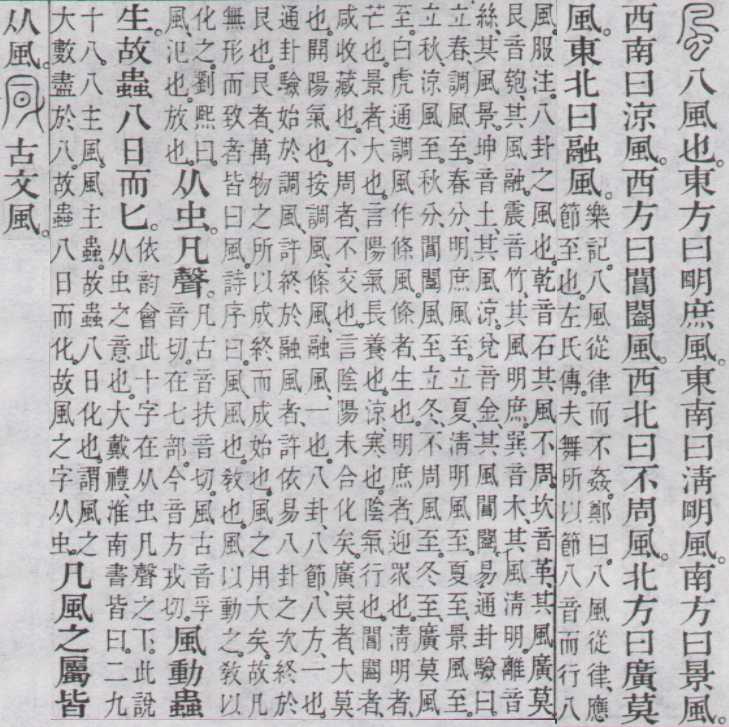 八風也。東方曰眀庶風。東南曰清眀風。南方曰景風。
西南曰涼風。西方曰閶闔風。西北曰不周風。北方曰廣莫
風。東北曰融風。
樂記。八風從律而不姦。鄭曰。八風從律。應
節至也。左氏傳。夫舞所以節八音而行八
風。服注。八卦之風也。乾音石。其風不周。坎音革。其風廣莫。
艮音匏。其風融。震音竹。其風明庶。巽音木。其風清明。離音
絲。其風景。坤音土。其風涼。兌音金。其風閶闔。易通卦驗曰。
立春。調風至。春分。明庶風至。立夏。清明風至。夏至。景風至。
立秋。涼風至。秋分。閶闔風至。立冬。不周風至。冬至。廣莫風
至。白虎通調風作條風。條者。生也。明庶者。迎眾也。清明者。
芒也。景者。大也。言陽氣長養也。涼。寒也。陰氣行也。閶闔者。
咸收藏也。不周者。不交也。言陰陽未合化矣。廣莫者。大莫
也。開陽氣也。按調風、條風、融風、一也。八卦、八節、八方、一也。
通卦驗始於調風。許終於融風者。許依易八卦之次終於
艮也。艮者。萬物之所以成終而成始也。風之用大矣。故凡
無形而致者皆曰風。詩序曰。風。風也。敎也。風以動之。敎以
化之。劉熙曰。
風。氾也。放也。
从虫。凡聲。
凡古音扶音切。風古音孚
音切。在七部。今音方戎切。
風動蟲
生。故蟲八日而匕。
依韵會此十字在从虫凡聲之下。此說
从虫之意也。大戴禮、淮南書皆曰。二九
十八。八主風。風主蟲。故蟲八日化也。謂風之
大數盡於八。故蟲八日而化。故風之字从虫。
凡風之屬皆
从風。
古文風。